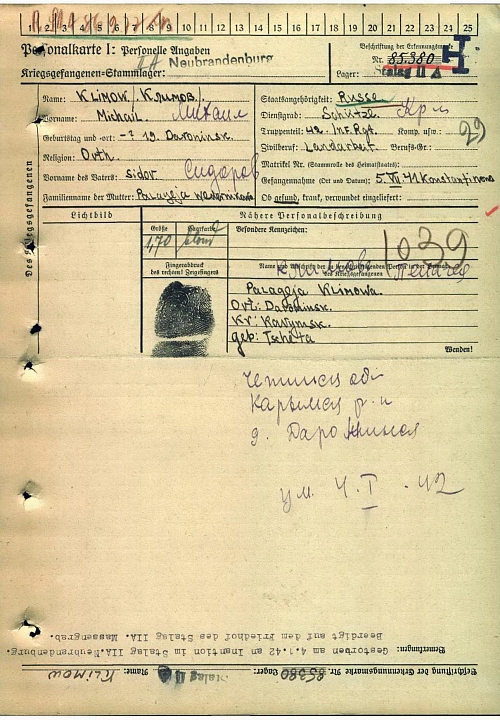 1 2 3 4 5 6 7 8 9 10 11 12 13 14 15 16 17 18 19 20 21 22 23 24 25
Personalkarte I: Personelle Angaben
Beschriftung der Erkennungsmarke
II A Neubrandenburg
Nr. 85380
Kriegsgefangenen-Stammlager:
Lager: Stalag II A
H
Des Kriegsgefangenen
Name: KLIMOW /Климов/
Vorname: Michail Михаил
Geburtstag und -ort: -? 19. Daroninsk.
Religion: Orth.
Vorname des Vaters: Sidor Сидоров
Familienname der Mutter: Palageja
Staatsangehörigkeit: Russe
Dienstgrad: Schütze Кр-ц
Truppenteil: 42. Inf. Rgt. Komp. usw.:
Zivilberuf: Landarbeit. Berufs-Gr.:
29
Matrikel Nr. (Stammrolle des Heimatstaates):
Gefangennahme (Ort und Datum): 5. VII 41 Konstantinowo
Ob gesund, krank, verwundet eingeliefert:
Lichtbild
Nähere Personalbeschreibung
Größe Haarfarbe
1,70 blond
Besondere Kennzeichen:
1039
Fingerabdruck
des rechten Zeigefingers
Name und Anschrift der zu benachrichtigenden Person in der Heimat
des Kriegsgefangenen
Palageja Klimowa.
Ort: Daroninsk.
Kr: Karymsk.
geb: Tscheta
Wenden!
Читинская обл
Карымск р-н
д. Даронинск
ум. 4. I. 42
Beschriftung der Erkennungsmarke Nr. 85380 Lager: Stalag II A Name: KLIMOW
Bemerkungen: Gestorben am 4.1.42 an Inanition im Stalag IIA.Neubrandenburg.
Beerdigt auf dem Friedhof des Stalag IIA. Massengrab.